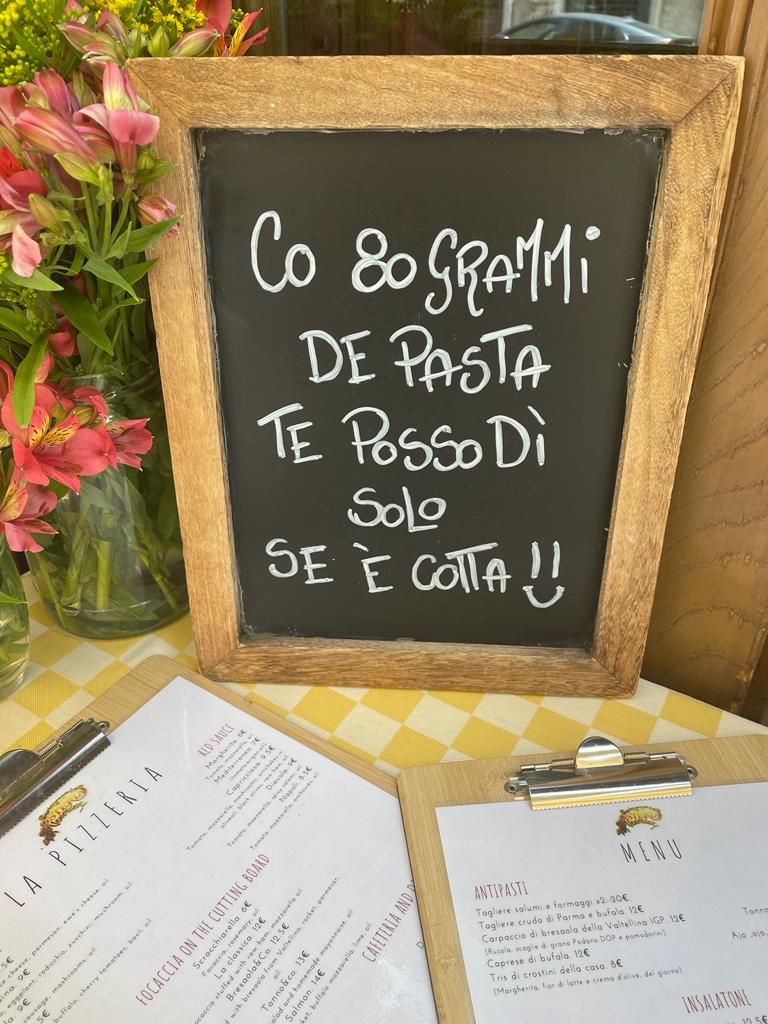 Co 80 GRAMMi
DE PASTA
TE POSSO DÌ
SOLO
SE È COTTA !!
LA PIZZERIA
RED SAUCE
Margherita. 6€
Mediterraneo. 7€
Capricciosa. 9.5€
Diavola. 9€
Napoli. 8.5€
FOCACCIA ON THE CUTTING BOARD
Scrocchiarello. 6€
Focaccia, rosemary, oil
La classica. 12€
Focaccia stuffed with raw ham, mozzarella oil
Bresaola&Co. 12.5€
Tonno&Co. 13€
Salmon. 14€
CAFETERIA AND
MENU
ANTIPASTI
Tagliere salumi e formaggi x2. 20€
Tagliere crudo di Parma e bufala. 12€
Carpaccio di bresaola della Valtellina IGP. 12€
(Rucola, scaglie di grana Padano DOP e pomodorini)
Caprese di bufala. 12€
Tris di crostini della casa. 8€
(Margherita, fior di latte e crema d'olive, del giorno)
INSALATONE